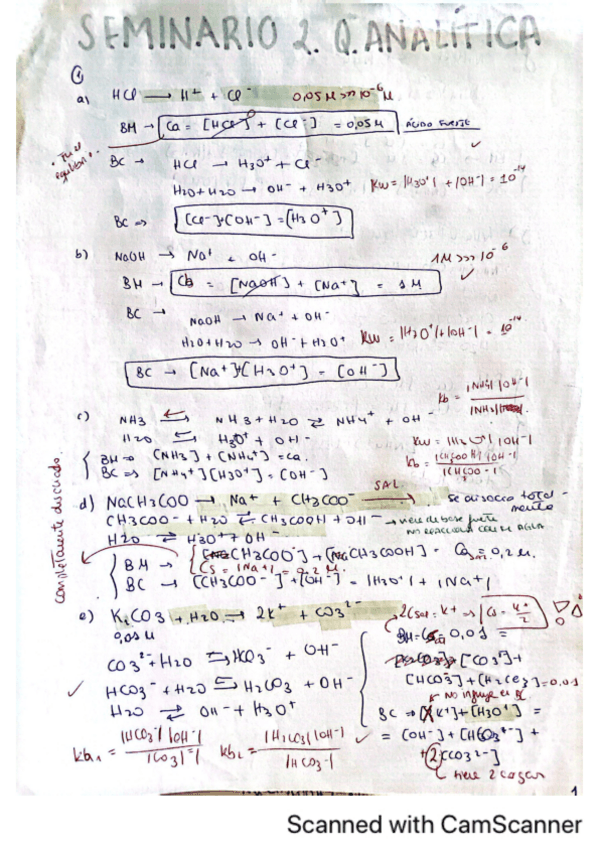 SEMINARIO 2. Q. ANALÍTICA
①
a) HCl → H+ + Cl- 0,05M >>> 10^-6 M
BM → Ca = [HCl] + [Cl-] = 0,05M ÁCIDO FUERTE
BC → HCl → H3O+ + Cl-
H2O + H2O → OH- + H3O+ Kw = |H3O+| + |OH-| = 10^-14
BC ⇒ [Cl-] + [OH-] = [H3O+]
b) NaOH → Na+ + OH- 1M >>> 10^-6
BM → Cb = [NaOH] + [Na+] = 1M
BC → NaOH → Na+ + OH-
H2O + H2O → OH- + H3O+ Kw = |H3O+| + |OH-| = 10^-14
BC → [Na+] + [H3O+] = [OH-]
c) NH3 ⇄ NH3 + H2O ⇄ NH4+ + OH-
Kb = |NH4| |OH-| / |NH3|
H2O ⇄ H3O+ + OH-
BM ⇒ [NH3] + [NH4+] = Ca.
BC ⇒ [NH4+] [H3O+] = [OH-]
Kb = |CH3COOH| |OH-| / |CH3COO-|
completamente disociado.
d) NaCH3COO → Na+ + CH3COO- SAL se disocia totalmente
CH3COO- + H2O ⇄ CH3COOH + OH- → viene de base fuerte
NO REACCIONA CON EL AGUA
H2O ⇄ H3O+ + OH-
BM → [CH3COO-] + [CH3COOH] = 0,2 M.
Cs = |Na+| = 0,2 M.
BC → [CH3COO-] + [OH-] = |H3O+| + |Na+|
e) K2CO3 + H2O → 2K+ + CO3 2-
0,01M
2Csal = K+ ⇒ Cs = K+/2
BM = 0,01 =
CO3 2- + H2O ⇄ HCO3- + OH-
[CO3=] +
[HCO3-] + [H2CO3] = 0,01
HCO3- + H2O ⇄ H2CO3 + OH-
No influye en BC
H2O ⇄ OH- + H3O+
BC ⇒ [K+] + [H3O+] =
= [OH-] + [HCO3-] +
+ 2[CO3 2-]
Kb1 = |HCO3-| |OH-| / |CO3=| Kb2 = |H2CO3| |OH-| / |HCO3-|
tiene 2 cargas
1
Scanned with CamScanner